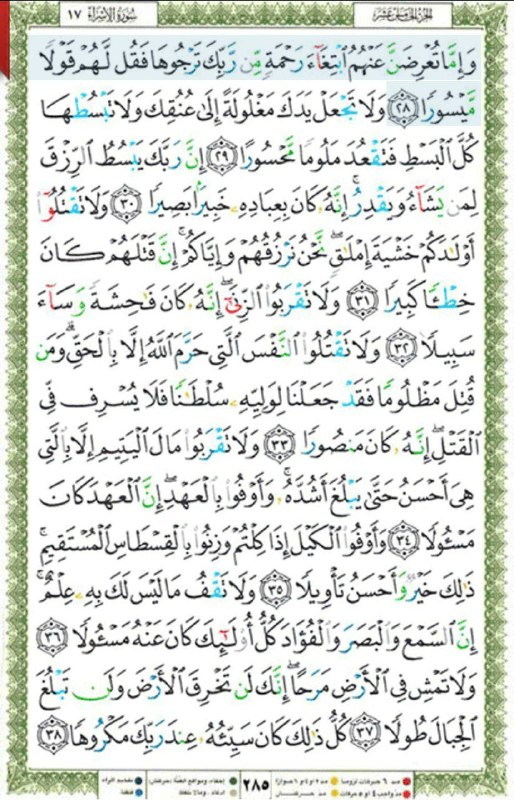 ١٧ سُورَةُ الإِسْرَاءِ الجُزْءُ الخَامِسَ عَشَرَ
وَإِمَّا تُعْرِضَنَّ عَنْهُمُ ٱبْتِغَآءَ رَحْمَةٍ مِّن رَّبِّكَ تَرْجُوهَا فَقُل لَّهُمْ قَوْلًا
مَّيْسُورًا ٢٨ وَلَا تَجْعَلْ يَدَكَ مَغْلُولَةً إِلَىٰ عُنُقِكَ وَلَا تَبْسُطْهَا
كُلَّ ٱلْبَسْطِ فَتَقْعُدَ مَلُومًا مَّحْسُورًا ٢٩ إِنَّ رَبَّكَ يَبْسُطُ ٱلرِّزْقَ
لِمَن يَشَآءُ وَيَقْدِرُ ۚ إِنَّهُۥ كَانَ بِعِبَادِهِۦ خَبِيرًۢا بَصِيرًا ٣٠ وَلَا تَقْتُلُوٓا۟
أَوْلَٰدَكُمْ خَشْيَةَ إِمْلَٰقٍ ۖ نَّحْنُ نَرْزُقُهُمْ وَإِيَّاكُمْ ۚ إِنَّ قَتْلَهُمْ كَانَ
خِطْـًٔا كَبِيرًا ٣١ وَلَا تَقْرَبُوا۟ ٱلزِّنَىٰٓ ۖ إِنَّهُۥ كَانَ فَٰحِشَةً وَسَآءَ
سَبِيلًا ٣٢ وَلَا تَقْتُلُوا۟ ٱلنَّفْسَ ٱلَّتِى حَرَّمَ ٱللَّهُ إِلَّا بِٱلْحَقِّ ۗ وَمَن
قُتِلَ مَظْلُومًا فَقَدْ جَعَلْنَا لِوَلِيِّهِۦ سُلْطَٰنًا فَلَا يُسْرِف فِّى
ٱلْقَتْلِ ۖ إِنَّهُۥ كَانَ مَنصُورًا ٣٣ وَلَا تَقْرَبُوا۟ مَالَ ٱلْيَتِيمِ إِلَّا بِٱلَّتِى
هِىَ أَحْسَنُ حَتَّىٰ يَبْلُغَ أَشُدَّهُۥ ۚ وَأَوْفُوا۟ بِٱلْعَهْدِ ۖ إِنَّ ٱلْعَهْدَ كَانَ
مَسْـُٔولًا ٣٤ وَأَوْفُوا۟ ٱلْكَيْلَ إِذَا كِلْتُمْ وَزِنُوا۟ بِٱلْقِسْطَاسِ ٱلْمُسْتَقِيمِ ۚ
ذَٰلِكَ خَيْرٌ وَأَحْسَنُ تَأْوِيلًا ٣٥ وَلَا تَقْفُ مَا لَيْسَ لَكَ بِهِۦ عِلْمٌ ۚ
إِنَّ ٱلسَّمْعَ وَٱلْبَصَرَ وَٱلْفُؤَادَ كُلُّ أُو۟لَٰٓئِكَ كَانَ عَنْهُ مَسْـُٔولًا ٣٦
وَلَا تَمْشِ فِى ٱلْأَرْضِ مَرَحًا ۖ إِنَّكَ لَن تَخْرِقَ ٱلْأَرْضَ وَلَن تَبْلُغَ
ٱلْجِبَالَ طُولًا ٣٧ كُلُّ ذَٰلِكَ كَانَ سَيِّئُهُۥ عِندَ رَبِّكَ مَكْرُوهًا ٣٨
٢٨٥